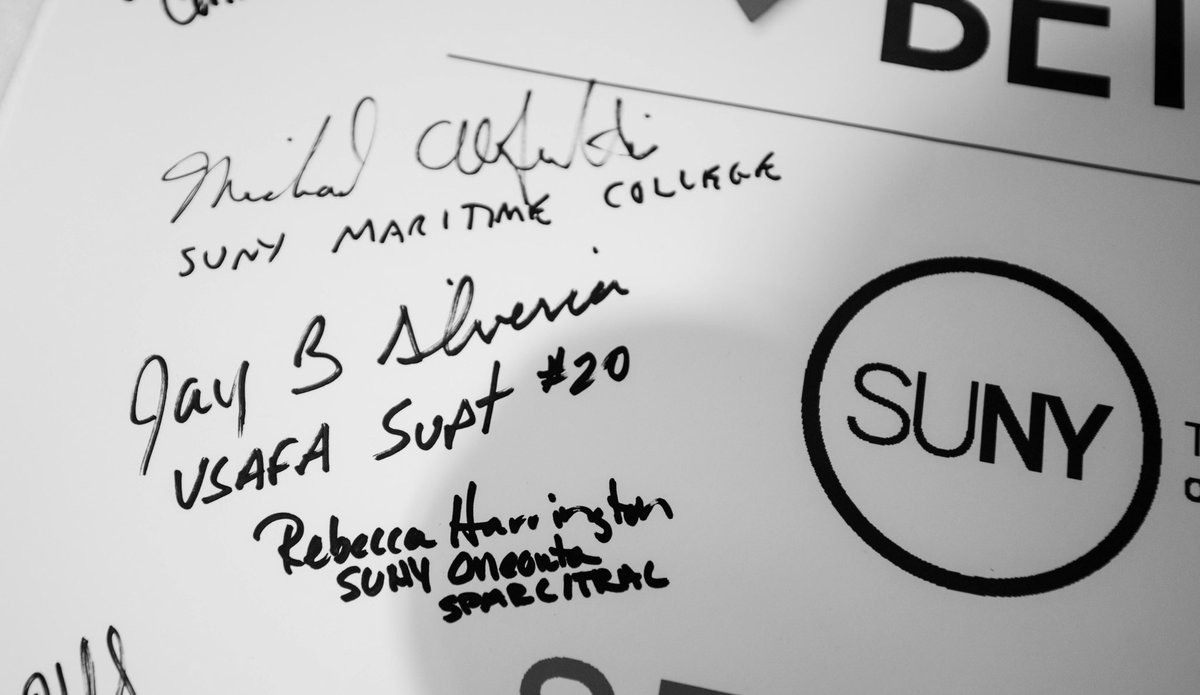 BE
Michael
SUNY MARITIME COLLEGE
Jay B Silveria
USAFA Supt #20
Rebecca Harrington
SUNY Oneonta
SPARC/TRAC
SUNY